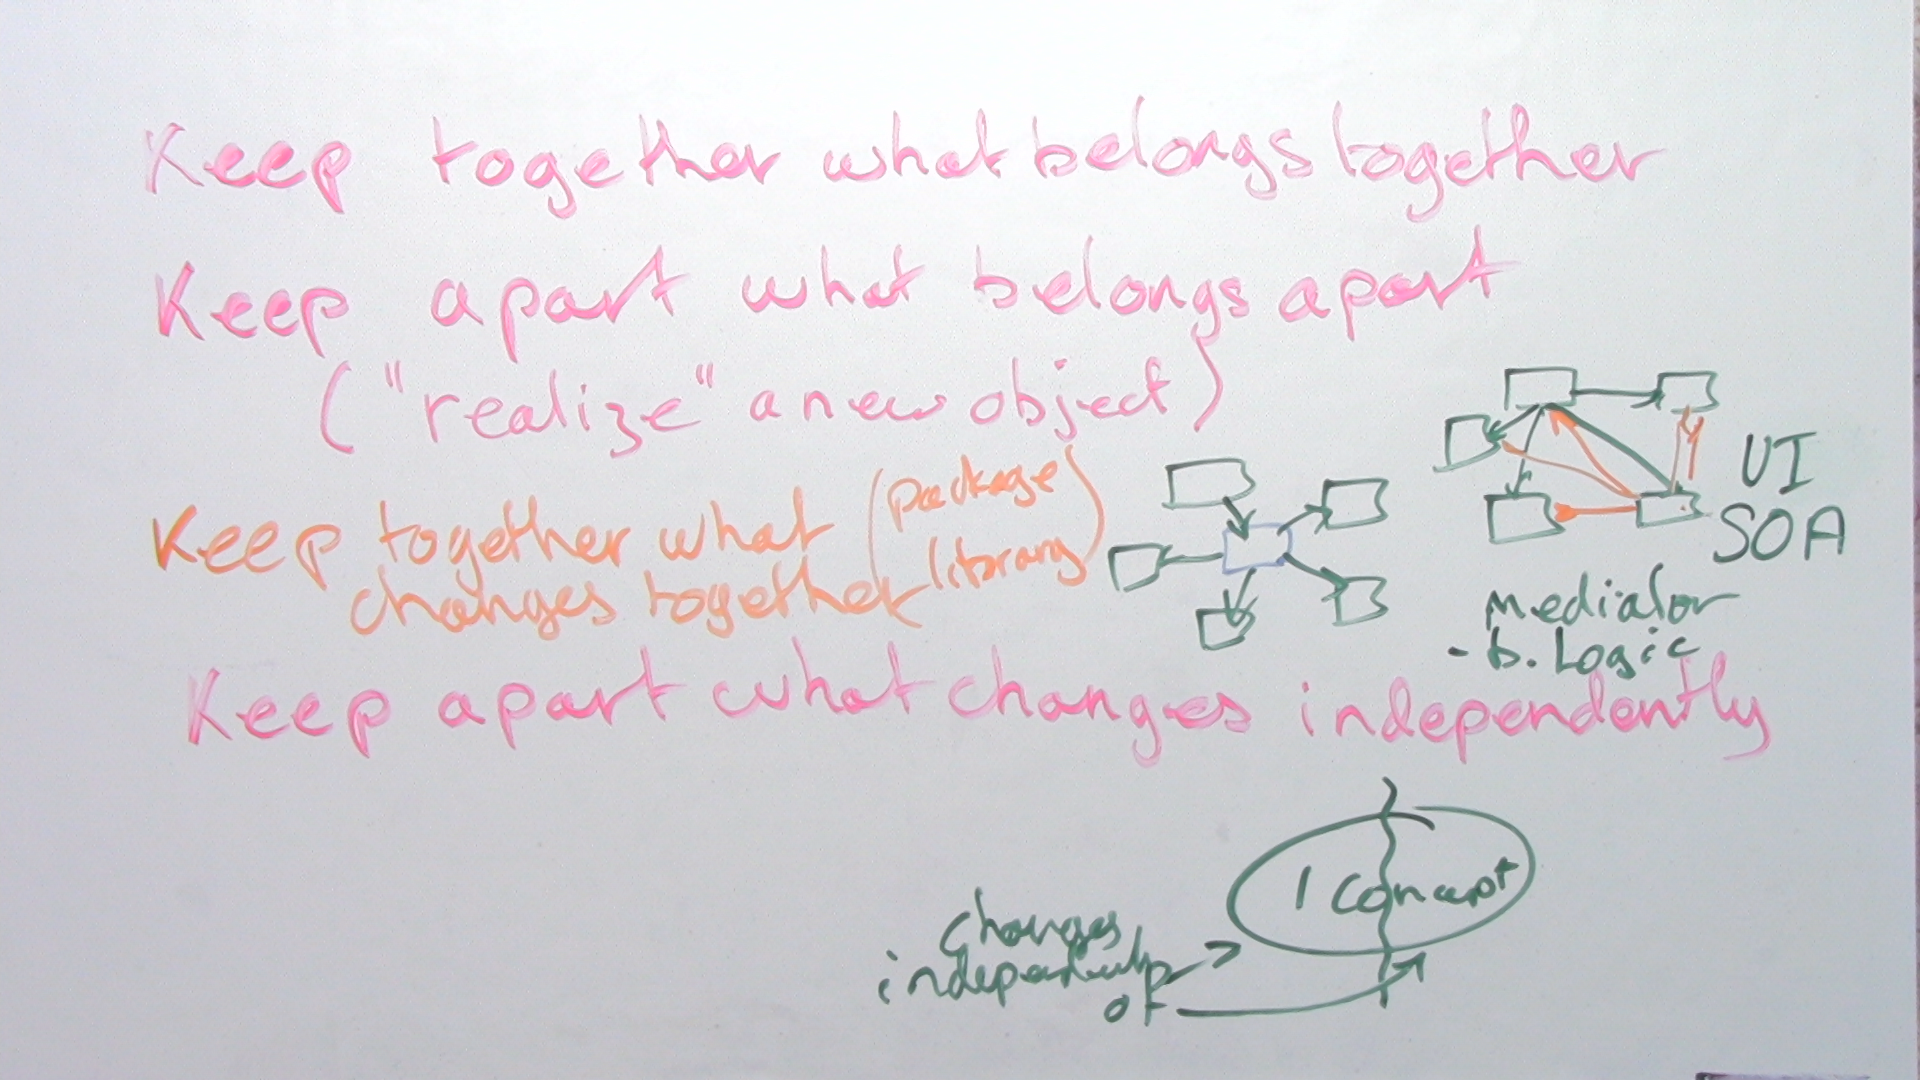 Keep together what belongs together
Keep apart what belongs apart
("realize" a new object)
Keep together what
changes together
(package
library)
UI
SOA
mediator
- b. Logic
Keep apart what changes independently
1 concept
changes
independently
of